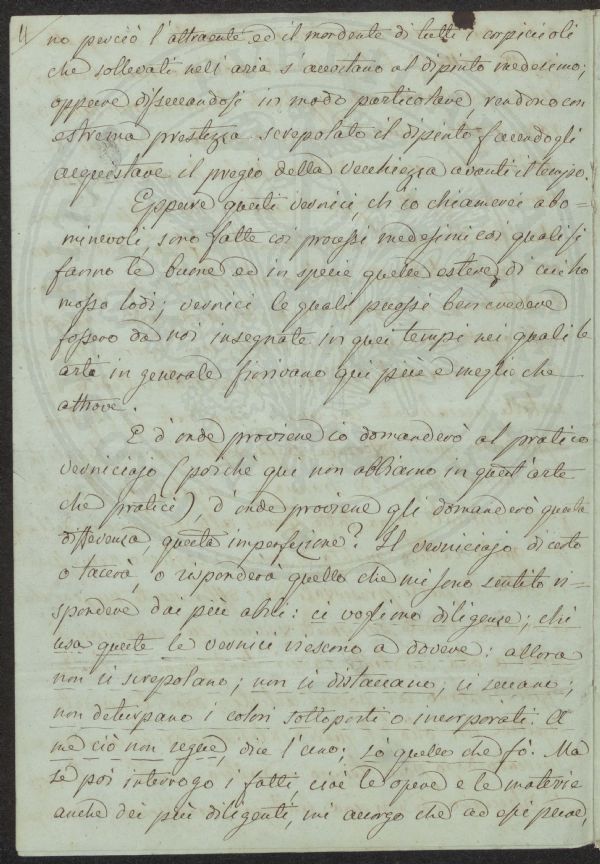 11
no perciò l'attraente ed il mordente di tutti i corpiccioli
che sollevati nell'aria s'accostano al dipinto medesimo;
oppure disseccandosi in modo particolare rendono con
estrema prestezza screpolato il dipinto facendogli
acquistare il pregio della vecchiezza avanti il tempo.
Eppure questi vernici, ch'io chiamerei abo-
minevoli, sono fatte coi processi medesimi coi quali si
fanno le buone ed in specie quelle estere di cui ho
mosso lodi; vernici le quali puossi ben credere
fossero da noi insegnate in quei tempi nei quali le
arti in generale fiorivano qui più e meglio che
altrove.
E d'onde proviene io domanderò al pratico
verniciajo (poichè qui non abbiamo in quest'arte
che pratici), d'onde proviene gli domanderò questa
differenza, questa imperfezione? Il verniciajo di certo
o tacerà, o risponderà quello che mi sono sentito ri-
spondere dai più abili: ci vogliono diligenze; chi
usa queste le vernici riescono a dovere: allora
non si screpolano; non si distaccano; si seccano;
non deturpano i colori sottoposti o incorporati. A
me ciò non segue, dice l'uno; so quello che fò. Ma
se poi interrogo i fatti, cioè le opere e le materie
anche dei più diligenti, mi accorgo che ad essi pure,